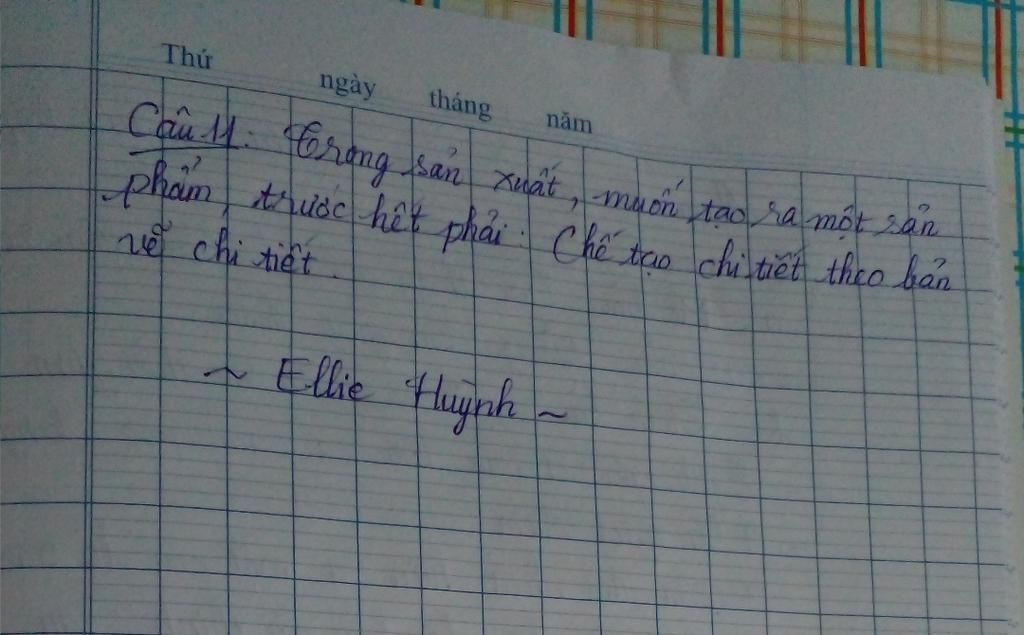 Thứ ngày tháng năm
Câu 11: Trong sản xuất, muốn tạo ra một sản
phẩm, trước hết phải: Chế tạo chi tiết theo bản
vẽ chi tiết.
~ Ellie Huỳnh ~